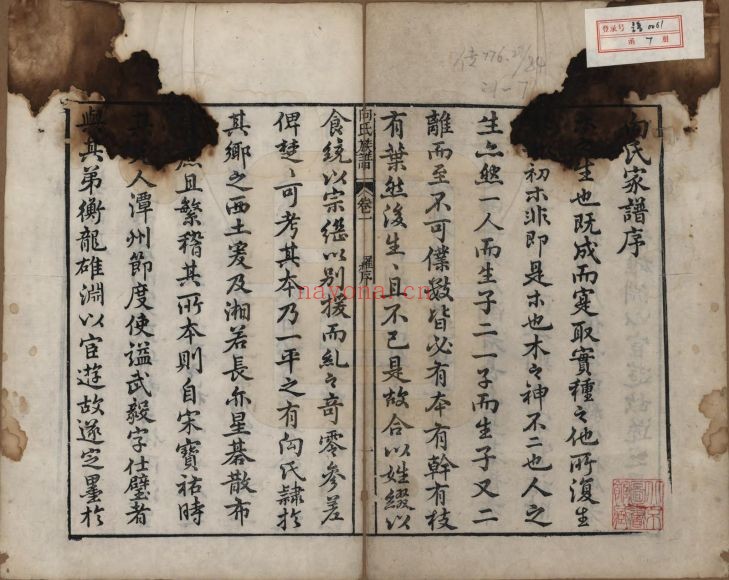 向氏家譜序
生也既成而寔取實種之他所復生
初木非即是木也木之神不二也人之
生亦然一人而生子二一子而生子又二
離而至不可僕數皆必有本有幹有枝
有葉然後生生且不已是故合以姓綴以
食統以宗繼以別援而糺之奇零參差
俾楚楚可考其本乃一平之有向氏隸於
其鄉之西土爰及湘若長亦星碁散布
庶且繁稽其所本則自宋寶祐時
其人潭州節度使謚武毅字仕璧者
與其弟衡龍雄淵以宦遊故遂定墨於
向氏族譜
卷一
羅序
一
登录号 譜0061
函 7 册
nayona.cn